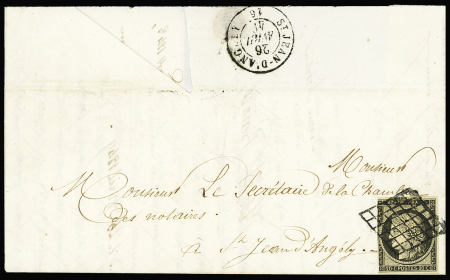 ST JEAN-D'ANGELY
16
26
AVRIL
Monsieur
Monsieur Le Secrétaire de la Chambre
des notaires.
à St Jean d'Angély
20 C POSTES 20 C